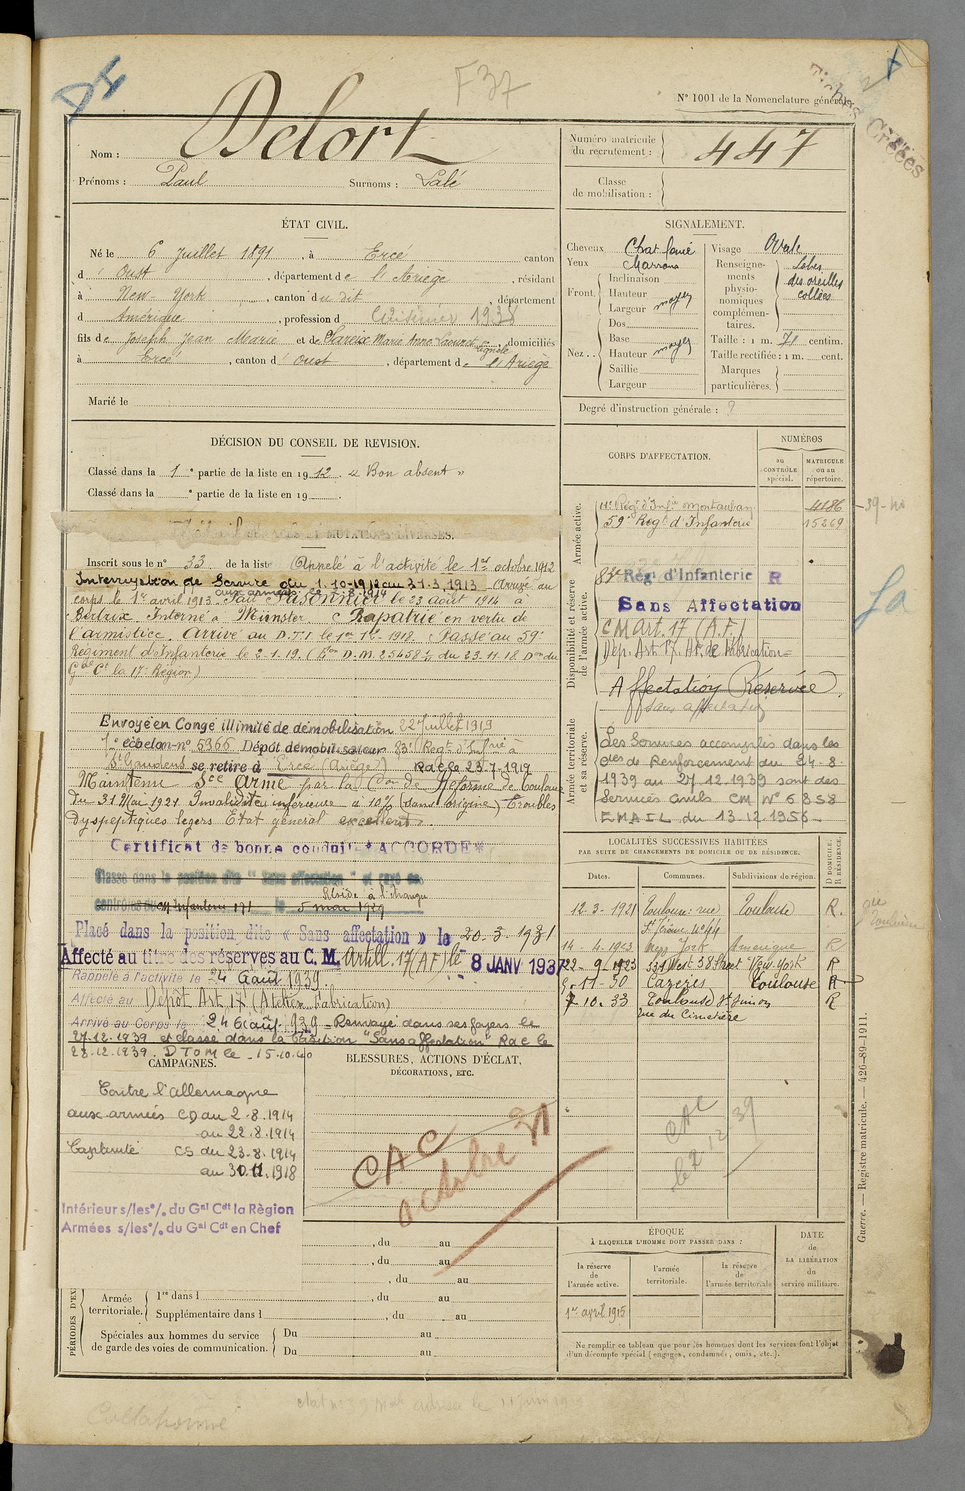 F 37
N° 1001 de la Nomenclature générale
Fiches Créées
Nom : Delort
Prénoms : Paul Surnoms : Lalé
Numéro matricule du recrutement : 447
Classe de mobilisation :
ÉTAT CIVIL.
Né le 6 Juillet 1891, à Ercé canton
d' Oust, département de l'Ariège, résidant
à New-York, canton du dit, département
d Amérique, profession d Cuisinier 1938
fils de Joseph Jean Marie et de Sareix Marie Anne domiciliés
à Ercé, canton d' Oust, département de l'Ariège
Marié le
SIGNALEMENT.
Cheveux Chat foncé
Yeux Marrons
Front. Inclinaison
Hauteur moyen
Largeur
Nez.. Dos
Base
Hauteur moyen
Saillie
Largeur
Visage Ovale
Renseignements physionomiques complémentaires. Lobes des oreilles collées
Taille : 1 m. 71 centim.
Taille rectifiée : 1 m. cent.
Marques particulières.
Degré d'instruction générale :
DÉCISION DU CONSEIL DE REVISION.
Classé dans la 1e partie de la liste en 1912. « Bon absent »
Classé dans la e partie de la liste en 19
CORPS D'AFFECTATION.
NUMÉROS
au CONTRÔLE spécial.
MATRICULE ou au répertoire.
Armée active.
11e Rég. d'Infie Montauban 4186
59e Regt d'Infanterie 15269
39-40
Disponibilité et réserve de l'armée active.
83e Régt d'Infanterie R
Sans Affectation
CM Art. 17 (A.F.)
Dép. Art. 17. At. de Fabrication
Affectation Réservée.
sans affectation
Armée territoriale et sa réserve.
Les services accomplis dans les
Cies de Renforcement du 24-8-
1939 au 27.12.1939 sont des
services civils CM N° 6858
EMAIL du 13-12-1956-
ET MUTATIONS DIVERSES.
Inscrit sous le n° 33 de la liste Appelé à l'activité le 1er octobre 1912
Interruption de Service du 1-10-1912 au 31.3.1913 Arrivé au
corps le 1er avril 1913. aux armées le 2-8-1914 Fait Prisonnier le 23 août 1914 à
Bertrix Interné à Münster. Rapatrié en vertu de
l'armistice. arrivé au D.T.I le 1er 1914-1918. Passé au 59e
Régiment d'Infanterie le 2-1-19. (Don D.M. 25658 du 23.11.18 Don du
Gal Ct la 17e Région)
Envoyé en Congé illimité de démobilisation 22 Juillet 1919
1er échelon n° 5366 Dépôt démobilisateur 83e Regt d'Infrie à
St Gaudens se retire à Ercé (Ariège) RaC le 23-7-1919
Maintenu Sce Armé par la Con de Réforme de Toulouse
Du 31 Mai 1921 Invalidité inférieure à 10% (sans origine) Troubles
dyspeptiques légers Etat général excellent.
Certificat de bonne conduite "ACCORDÉ"
Classé dans la position dite "Sans affectation" et rayé des
contrôles du CM Infanterie 171 le 5 mai 1929 Réside à l'étranger
Placé dans la position dite « Sans affectation » le 20-3-1931
Affecté au titre des réserves au C. M. Artill. 17 (A F) le 8 JANV 1937
Rappelé à l'activité le 24 Août 1939
Affecté au Dépôt Art. 17 (Atelier Fabrication)
Arrivé au Corps le 24 Août 1939 - Renvoyé dans ses foyers le
27.12.1939 et classé dans la position "Sans affectation" RaC le
28.12.1939. DTOM le 15.10.40
LOCALITÉS SUCCESSIVES HABITÉES
PAR SUITE DE CHANGEMENTS DE DOMICILE OU DE RÉSIDENCE.
Dates. Communes. Subdivisions de région. D DOMICILE. R RÉSIDENCE.
12-3-1921 Toulouse rue St Jérôme N° 44 Toulouse R.
14-4-1923 New York Amérique R
22-9-1923 331 West 38 Street New-York R
5-11-30 Cazères Toulouse R
7-10-33 Toulouse St Simon R
rue du Cimetière
CAMPAGNES.
Contre l'allemagne
aux armées CD au 2.8.1914
au 22.8.1914
Captivité CS du 23.8.1914
au 30.11.1918
Intérieur s/les°/. du Gal Cdt la Région
Armées s/les°/. du Gal Cdt en Chef
BLESSURES, ACTIONS D'ÉCLAT,
DÉCORATIONS, ETC.
CAC
octobre 31
CAC
le 2 12/39
, du au
, du au
, du au
PÉRIODES D'EX
Armée territoriale. 1re dans l , du au
Supplémentaire dans l , du au
Spéciales aux hommes du service de garde des voies de communication. Du au
Du au
ÉPOQUE
À LAQUELLE L'HOMME DOIT PASSER DANS :
la réserve de l'armée active.
l'armée territoriale.
la réserve de l'armée territoriale
DATE de LA LIBÉRATION du service militaire.
1er avril 1915
Ne remplir ce tableau que pour les hommes dont les services font l'objet
d'un décompte spécial (engagés, condamnés, omis, etc.).
Guerre. — Registre matricule. — 426-89-1911.